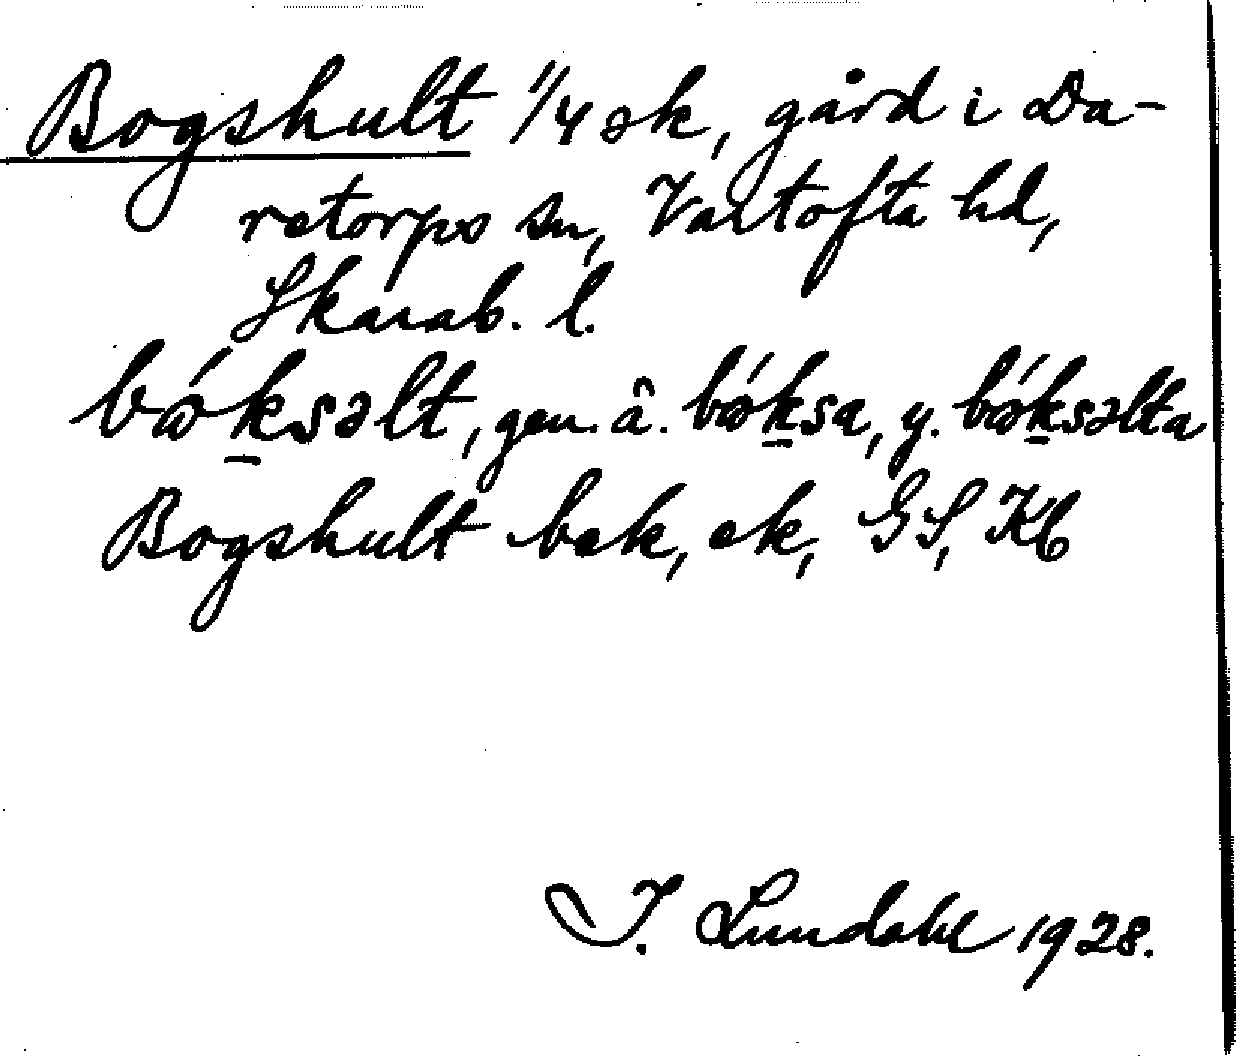 Bogshult 1/4 ek, gård i Da-
retorps sn, Vartofta hd,
Skarab. l.
bóksəlt, gen. â. bóksa, y. bóksəlta
Bogshult bek, ek, GS, Kb
I. Lundahl 1928.